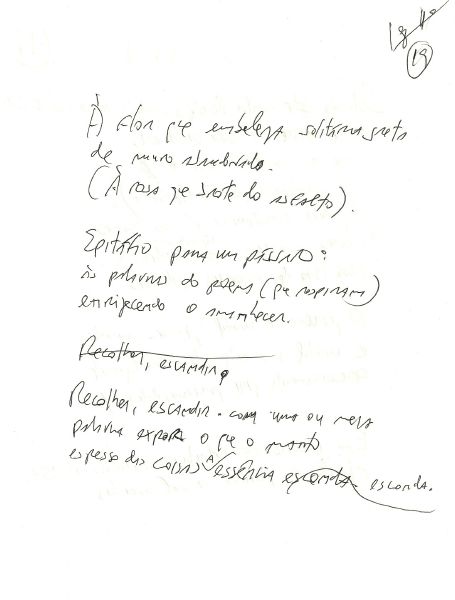 19
À flor que embeleza solitária greta
de muro abandonado.
(À rosa que brote do asfalto).
Epitáfio para um pássaro:
as palavras do poema (que respiram)
enrijecendo o amanhecer.
Recolher, escandir,
Recolher, escandir. com uma ou meia
palavra expor o que o manto
espesso das coisas A essência esconda. esconda.